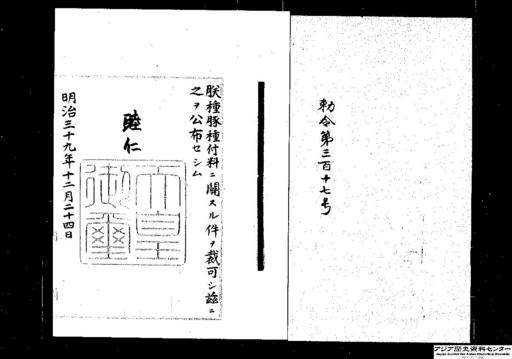 勅令第三百十七号
朕種豚種付料ニ關スル件ヲ裁可シ玆ニ
之ヲ公布セシム
睦仁
天皇
御璽
明治三十九年十二月二十四日
アジア歴史資料センター
Japan Center for Asian Historical Records